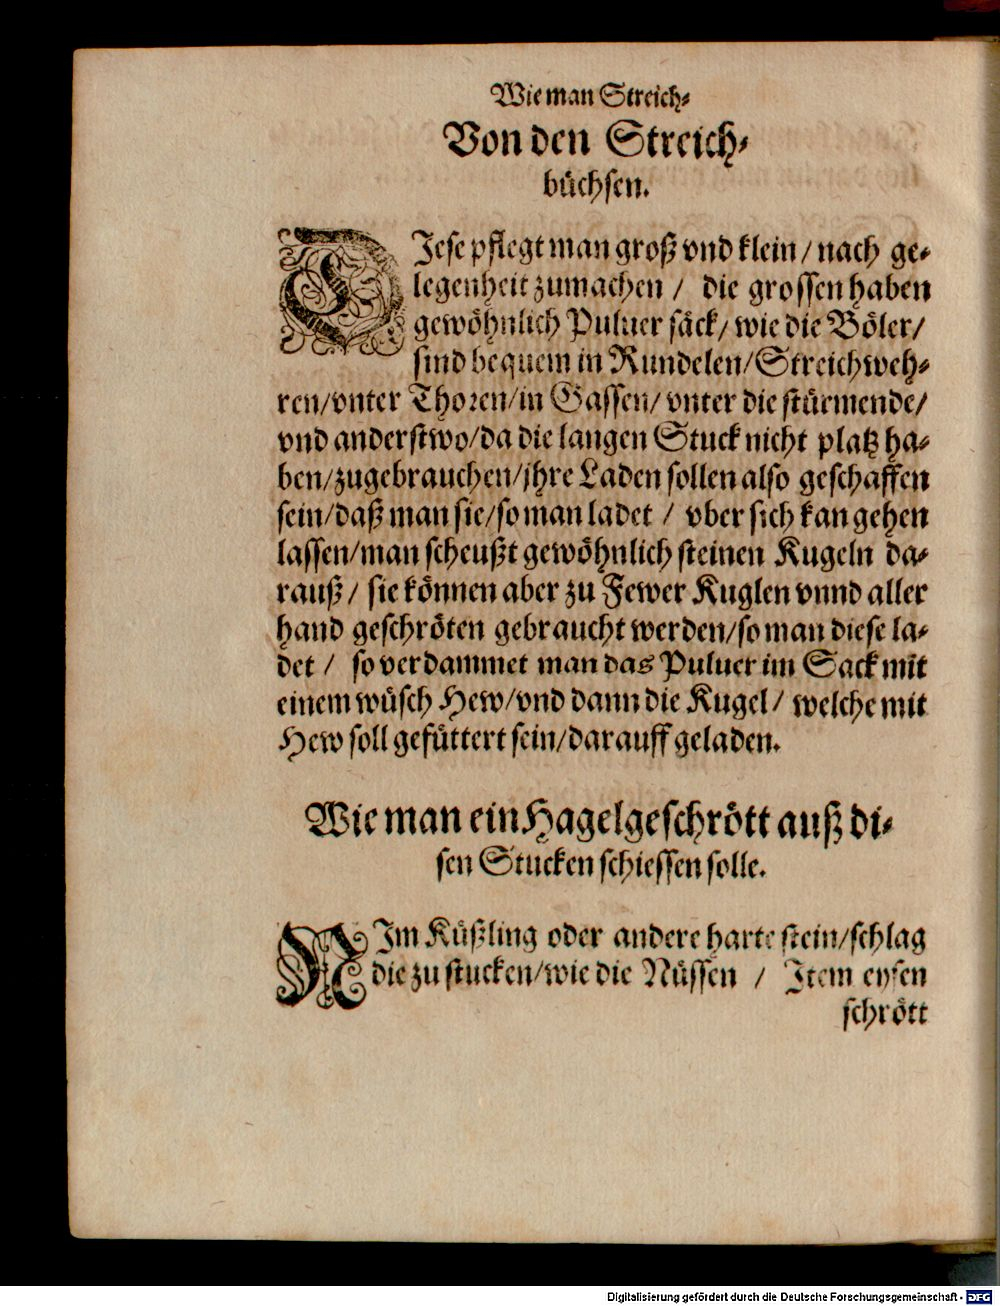 Wie man Streich⸗
Von den Streich⸗
büchsen.
DIese pflegt man groß vnd klein / nach ge⸗
legenheit zumachen / die grossen haben
gewöhnlich Puluer säck / wie die Böler /
sind bequem in Rundelen / Streichweh⸗
ren / vnter Thoren / in Gassen / vnter die stürmende /
vnd anderstwo / da die langen Stuck nicht platz ha⸗
ben / zugebrauchen / jhre Laden sollen also geschaffen
sein / daß man sie / so man ladet / vber sich kan gehen
lassen / man scheußt gewöhnlich steinen Kugeln da⸗
rauß / sie können aber zu Fewer Kuglen vnnd aller
hand geschröten gebraucht werden / so man diese la⸗
det / so verdammet man das Puluer im Sack mit
einem wüsch Hew / vnd dann die Kugel / welche mit
Hew soll gefüttert sein / darauff geladen.
Wie man ein Hagelgeschrött auß di⸗
sen Stucken schiessen solle.
NIm Küßling oder andere harte stein / schlag
die zu stucken / wie die Nüssen / Item eysen
schrött
Digitalisierung gefördert durch die Deutsche Forschungsgemeinschaft - DFG